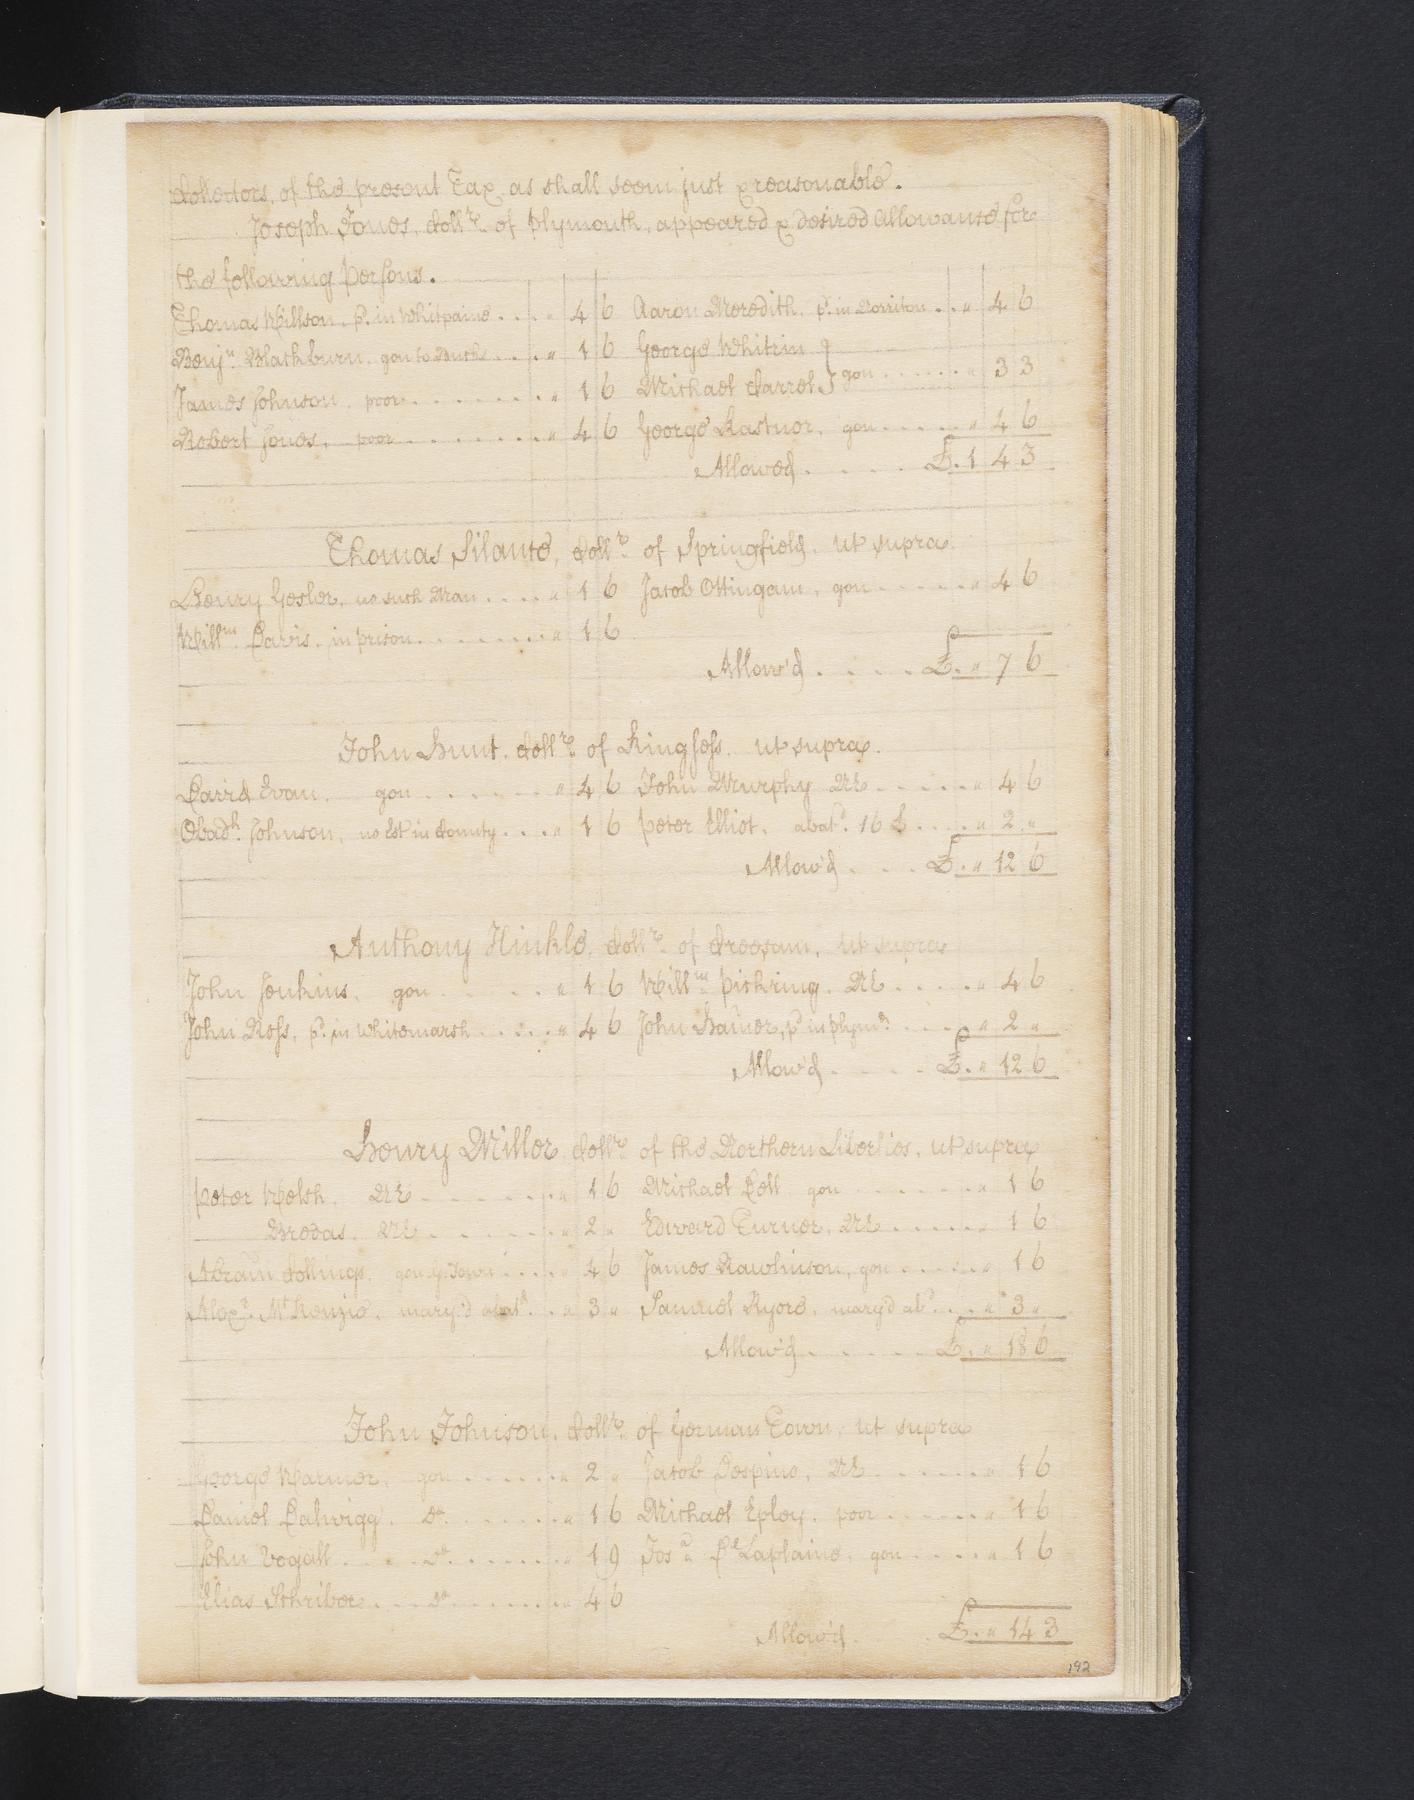 Collectors, of the present Tax as shall seem just & reasonable.
Joseph Jones, Coll.r of Plymouth, appeared & desired allowance for
the following Persons.
Thomas Willson, p.d in Whitpaine .... " 4 6 Aaron Meredith, p.d in Norriton .. " 4 6
Benj.n Blackburn, gon to Bucks .... " 1 6 George Whitein }
James Johnson, poor ........ " 1 6 Michael Carrel } gon ...... " 3 3
Robert Jones, poor ........ " 4 6 George Kastnor, gon ..... " 4 6
Allowed ..... £. 1 4 3
Thomas Silance, Coll.r of Springfield, ut supra
Henry Gesler, no such Man .... " 1 6 Jacob Ottingam, gon ..... " 4 6
Will.m Davis, in prison ....... " 1 6
Allow'd .... £. " 7 6
John Hunt, Coll.r of Kingsess, ut supra.
David Evan, gon ...... " 4 6 John Murphy NE ..... " 4 6
Obad.h Johnson, no Est in County ... " 1 6 Peter Elliot, abat.d 16 £ .... " 2 "
Allow'd ... £. " 12 6
Anthony Hinkle, Coll.r of Creesam, ut supra
John Jenkins, gon .... " 1 6 Will.m Pickring, NE .... " 4 6
John Ross, p.d in Whitemarsh .... " 4 6 John Hamer, p.d in Plym.o ... " 2 "
Allow'd .... £. " 12 6
Henry Miller Coll.r of the Northern Liberties, ut supra
Peter Welsh, NE ....... " 1 6 Michael Dell gon ...... " 1 6
Bredas, NE ...... " 2 " Edward Turner, NE ..... " 1 6
Abram Collings, gon G.Town .... " 4 6 James Rawlinson, gon ..... " 1 6
Alex.r McKenzie, mary'd abat.d .. " 3 " Samuel Kyore, mary'd ab.d ... " 3 "
Allow'd ..... £. " 18 6
John Johnson, Coll.r of German Town, ut supra
George Warner, gon ...... " 2 " Jacob Despino, NE ...... " 1 6
Daniel Dalwigg, D.o ....... " 1 6 Michael Epley, poor ...... " 1 6
John Vogall ... D.o ....... " 1 9 Jos.a DeLaplaine, gon .... " 1 6
Elias Schriber ... D.o ....... " 4 6
Allow'd . £. " 14 3
192